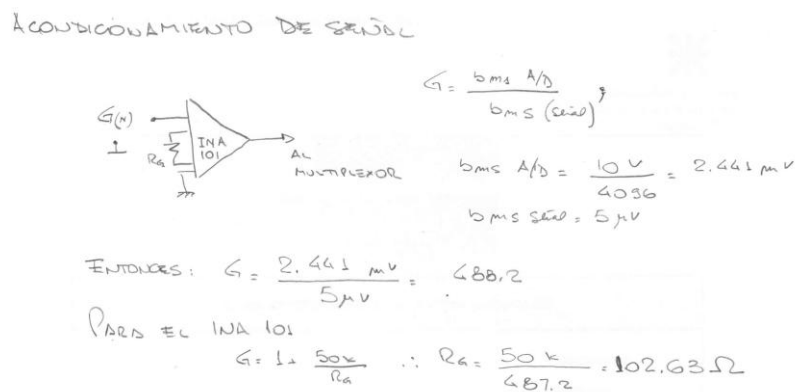 ACONDICIONAMIENTO DE SEÑAL
G = bms A/D / bms (señal) ;
G(N)
1
RG
INA
101
AL
MULTIPLEXOR
bms A/D = 10 V / 4096 = 2.441 mV
bms señal = 5 μV
ENTONCES: G = 2.441 mV / 5 μV = 488.2
PARA EL INA 101
G = 1 + 50k / RG ∴ RG = 50 k / 487.2 = 102.63 Ω